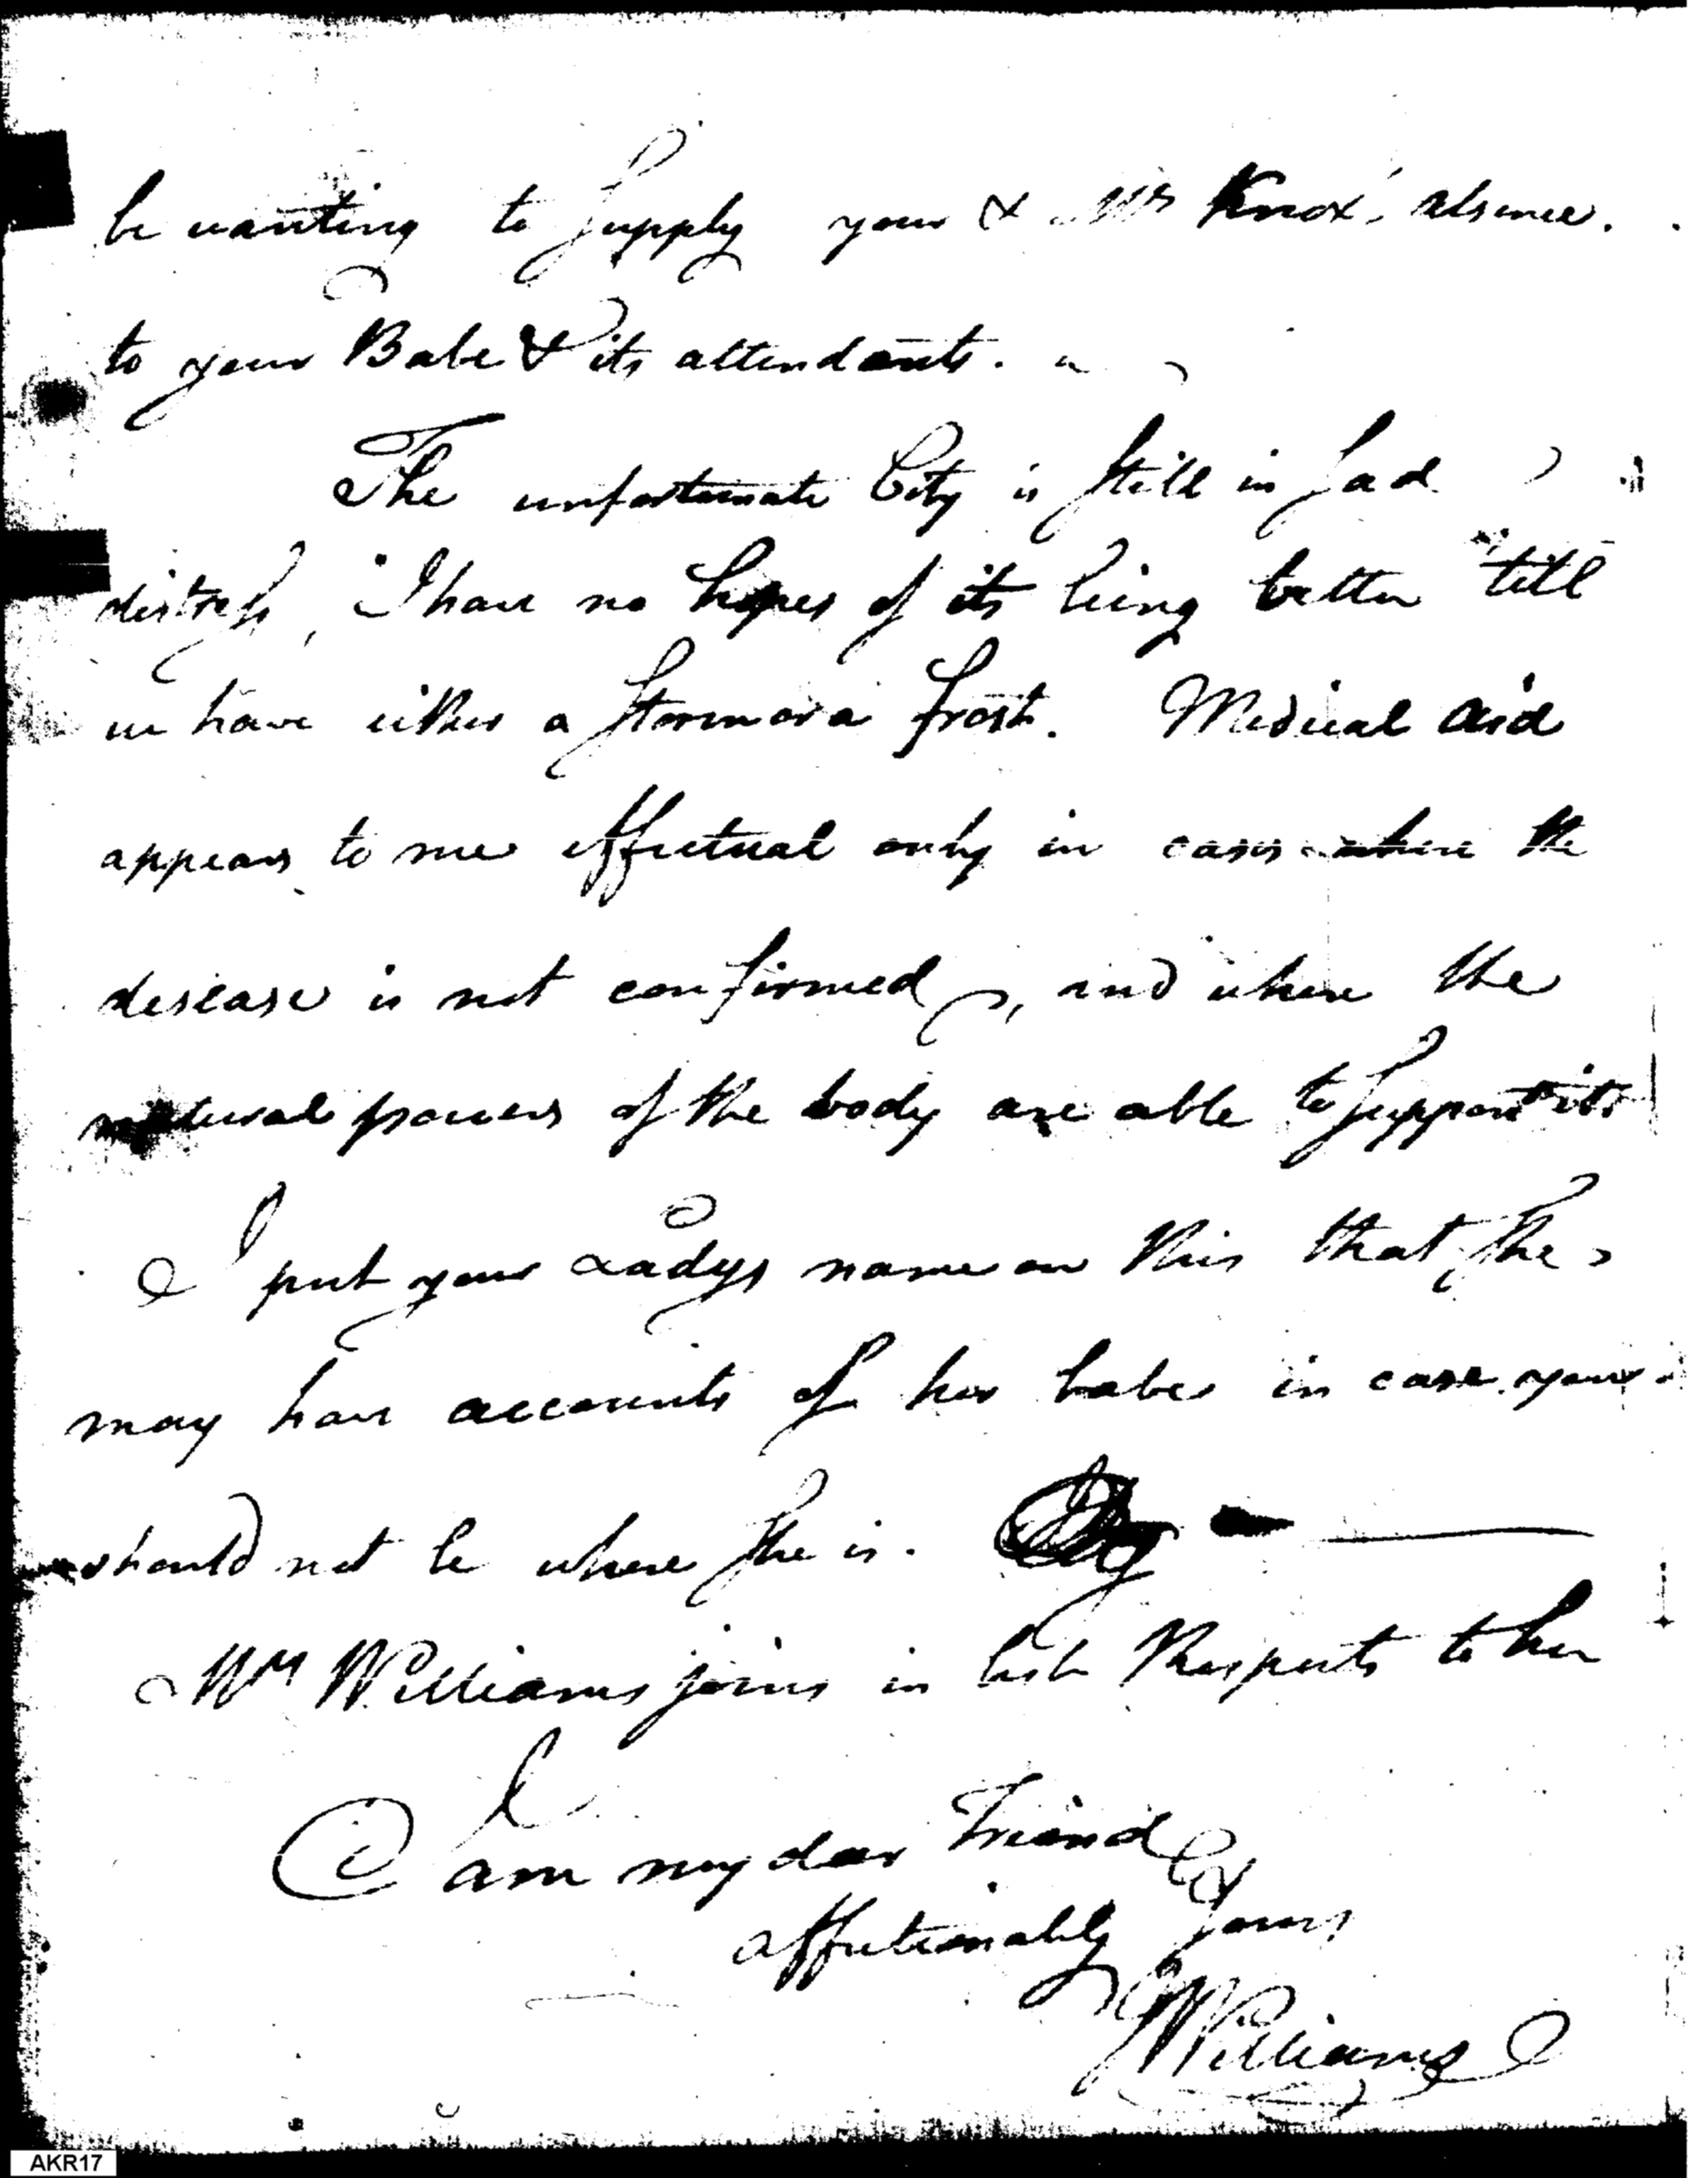 be wanting to supply your & Mrs Knox's absence.
to your Babe & its attendants.
The unfortunate City is still in sad
distress, I have no hopes of its being better till
we have either a storm or a frost. Medical aid
appears to me effectual only in cases where the
desease is not confirmed, and where the
natural powers of the body are able to support it
I put your Ladys name on this that she
may have accounts of her babe in case you
should not be where she is.
Mrs Williams joins in best Respects to her
I am my dear Friend
affectionably yours
Williams
AKR17